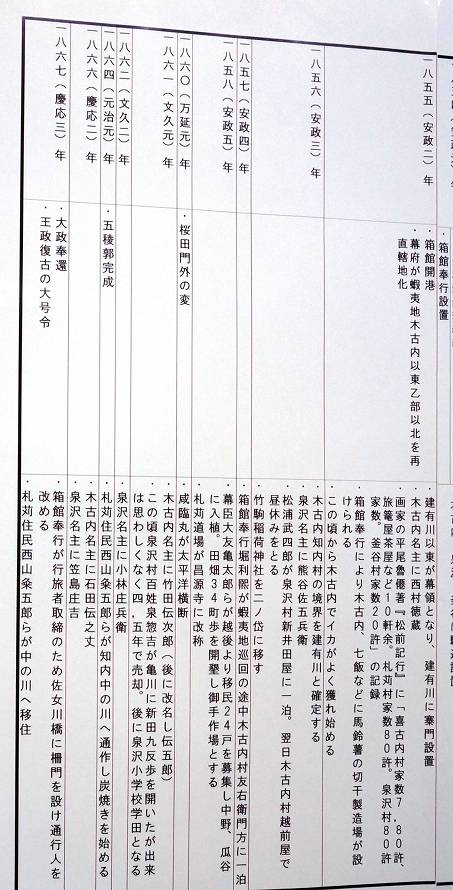 ・箱館奉行設置
一八五五(安政二)年
・箱館開港
・幕府が蝦夷地木古内以東乙部以北を再
直轄地化
・建有川以東が幕領となり、建有川に寨門設置
・木古内名主に西村徳蔵
・画家の平尾魯僊著『松前記行』に「喜古内村家数7,80許、
旅籠屋茶屋など10軒余。札苅村家数80許。泉沢村80
家数。釜谷村家数20許」の記録
・箱館奉行により木古内、七飯などに馬鈴薯の切干製造場が設
けられる
・この頃から木古内でイカがよく獲れ始める
一八五六(安政三)年
・木古内知内村の境界を建有川と確定する
・泉沢名主に熊谷佐五兵衛
・松浦武四郎が泉沢村新井田屋に一泊。翌日木古内村越前屋で
昼休みをとる
・竹駒稲荷神社を二ノ岱に移す
一八五七(安政四)年
・箱館奉行堀利熙が蝦夷地巡回の途中木古内村友右衛門方に一泊
一八五八(安政五)年
・幕臣大友亀太郎らが越後より移民24戸を募集し中野、瓜谷
に入植。田畑34町歩を開墾し御手作場とする
・札苅道場が昌源寺に改称
一八六〇(万延元)年
・桜田門外の変
・咸臨丸が太平洋横断
一八六一(文久元)年
・木古内名主に竹田伝次郎(後に改名し伝五郎)
・この頃泉沢村百姓泉惣吉が亀川に新田九反歩を開いたが出来
は思わしくなく四,五年で売却。後に泉沢小学校学田となる
一八六二(文久二)年
・泉沢名主に小林庄兵衛
一八六四(元治元)年
・五稜郭完成
・札苅住民西山粂五郎らが知内中の川へ通作し炭焼きを始める
一八六六(慶応二)年
・木古内名主に石田伝之丈
・泉沢名主に笠島庄吉
一八六七(慶応三)年
・大政奉還
・王政復古の大号令
・箱館奉行が行旅者取締のため佐女川橋に柵門を設け通行人を
改める
・札苅住民西山粂五郎らが中の川へ移住